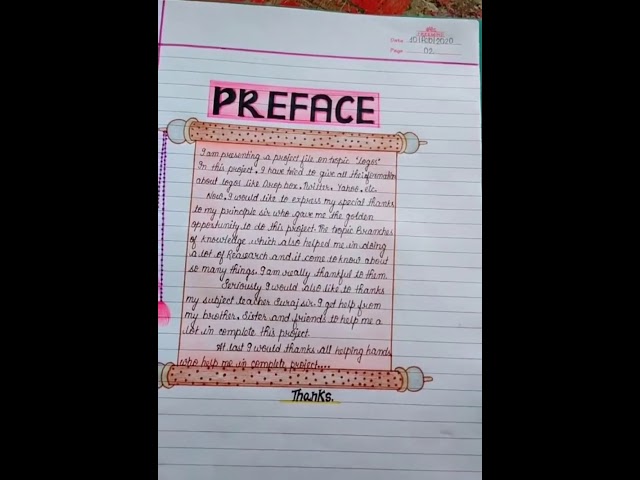 Date 10/Feb/2020
Page 02
PREFACE
I am presenting a project file on tropic "Logos"
In this project, I have tried to give all the information
about logos like Drop box, Twitter, Yahoo, etc.
Now, I would like to express my special thanks
to my principle sir who gave me the golden
opportunity to do this project. The tropic Branches
of knowledge which also helped me in doing
a lot of Research and it come to know about
so many things. I am really thankful to them.
Seriously I would also like to thanks
my subject teacher Suraj sir. I got help from
my brother, Sister and friends to help me a
lot in complete this project.
At last I would thanks all helping hands
who help me in complete project....
Thanks.